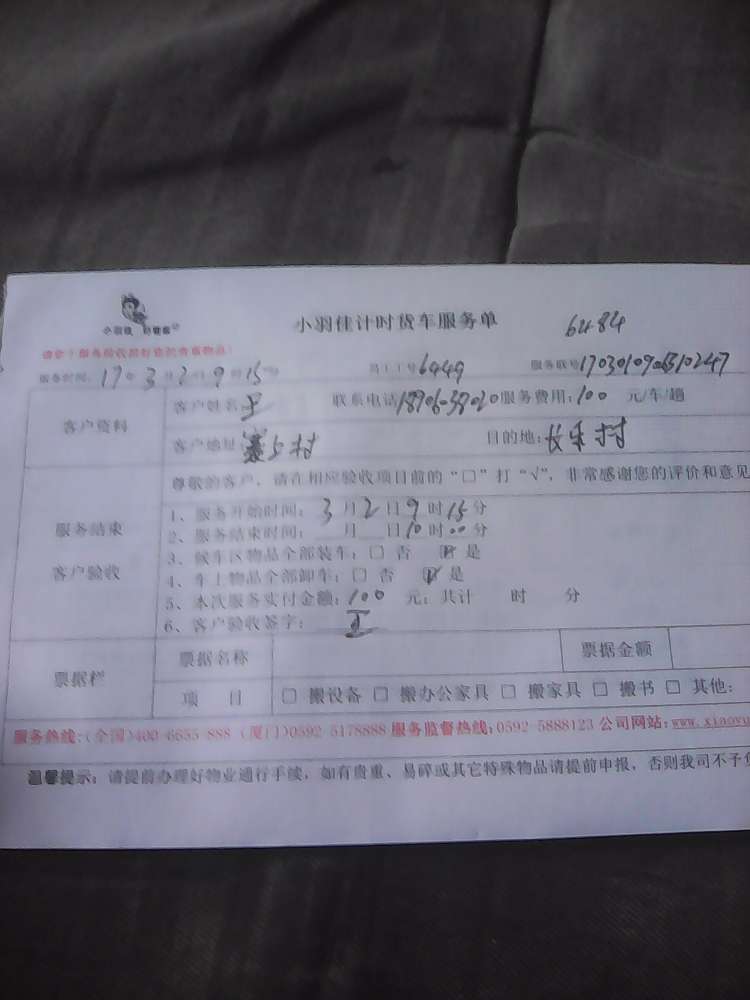 小羽佳 好管家
小羽佳计时货车服务单
6484
服务时间：17年3月2日9时15分 员工工号6449 服务联号1703010906310247
客户资料
客户姓名王 联系电话 服务费用：100 元/车/趟
客户地址 寨上村 目的地：长乐村
尊敬的客户，请在相应验收项目前的“□”打“√”，非常感谢您的评价和意见
服务结束
客户验收
1、服务开始时间：3月2日9时15分
2、服务结束时间： 月 日10时00分
3、候车区物品全部装车：□ 否 ☑ 是
4、车上物品全部卸车：□ 否 ☑ 是
5、本次服务实付金额：100 元；共计 时 分
6、客户验收签字：王
票据栏
票据名称 票据金额
项 目 □ 搬设备 □ 搬办公家具 □ 搬家具 □ 搬书 □ 其他：
服务热线：(全国)400-6655-888 (厦门)0592-5178888 服务监督热线：0592-5888123 公司网站：www.xiaoyu
温馨提示：请提前办理好物业通行手续，如有贵重、易碎或其它特殊物品请提前申报，否则我司不予